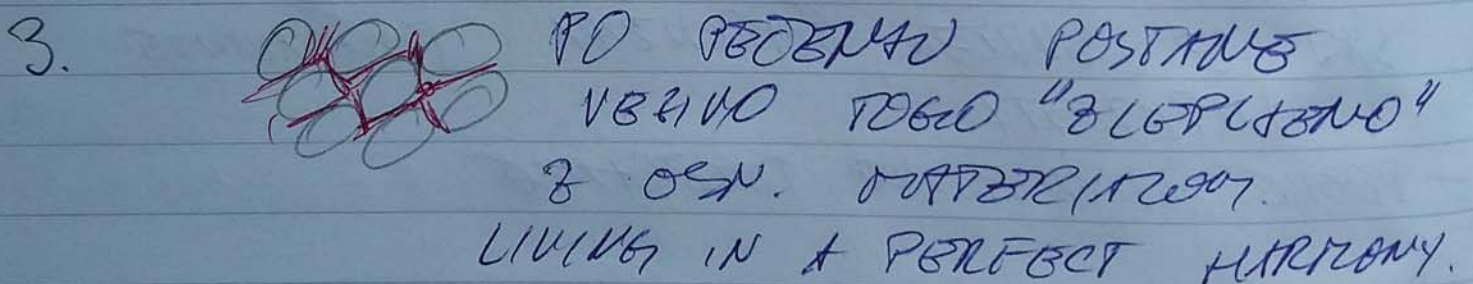 3. PO PEČENJU POSTANE
VEZIVO TOGO "ZLEPLJENO"
Z OSN. MATERIALOM.
LIVING IN A PERFECT HARMONY.